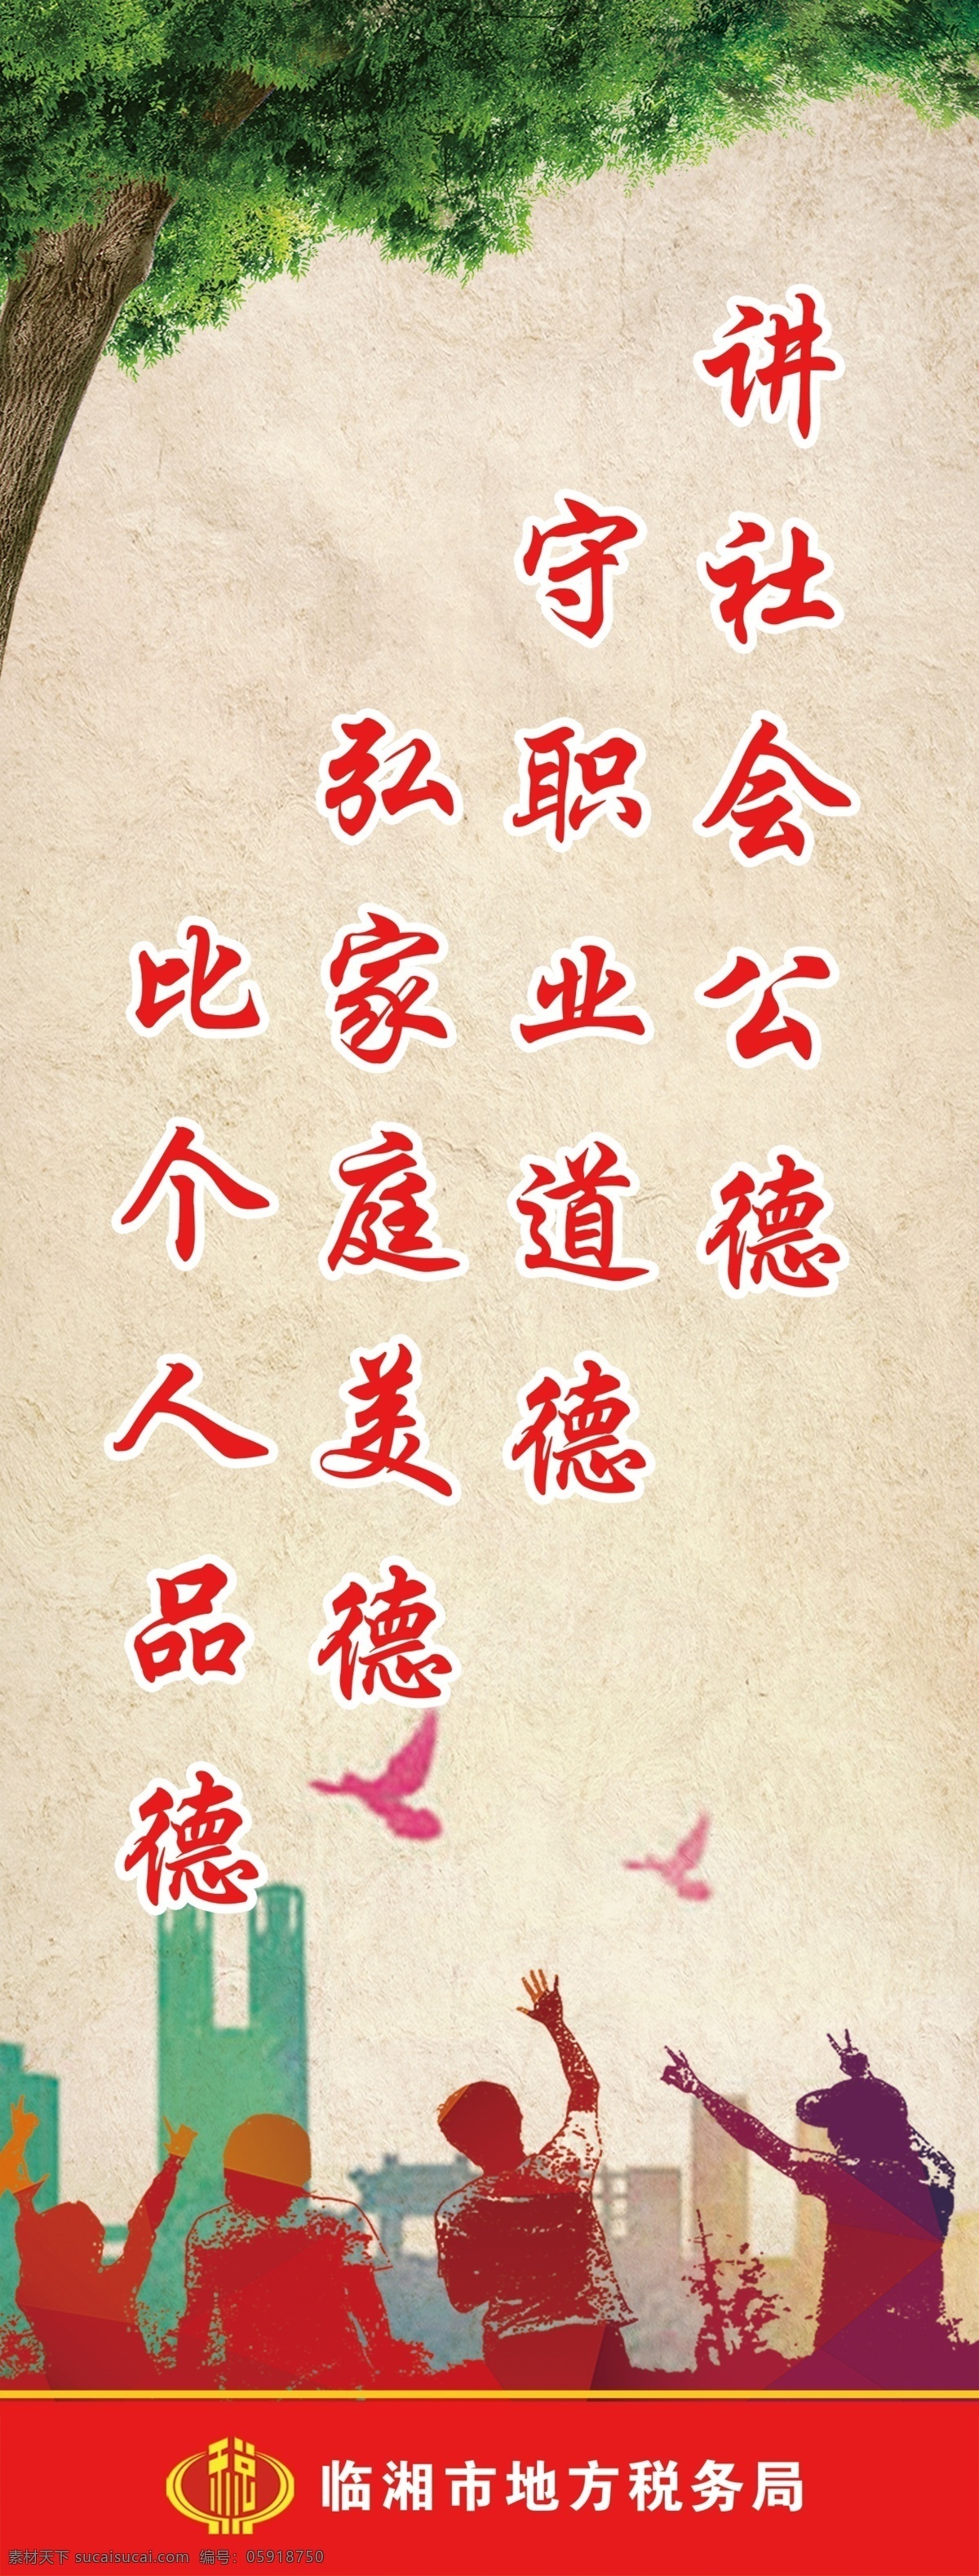 讲社会公德
守职业道德
弘家庭美德
比个人品德
税
临湘市地方税务局
素材天下 sucaisucai.com 编号：05918750